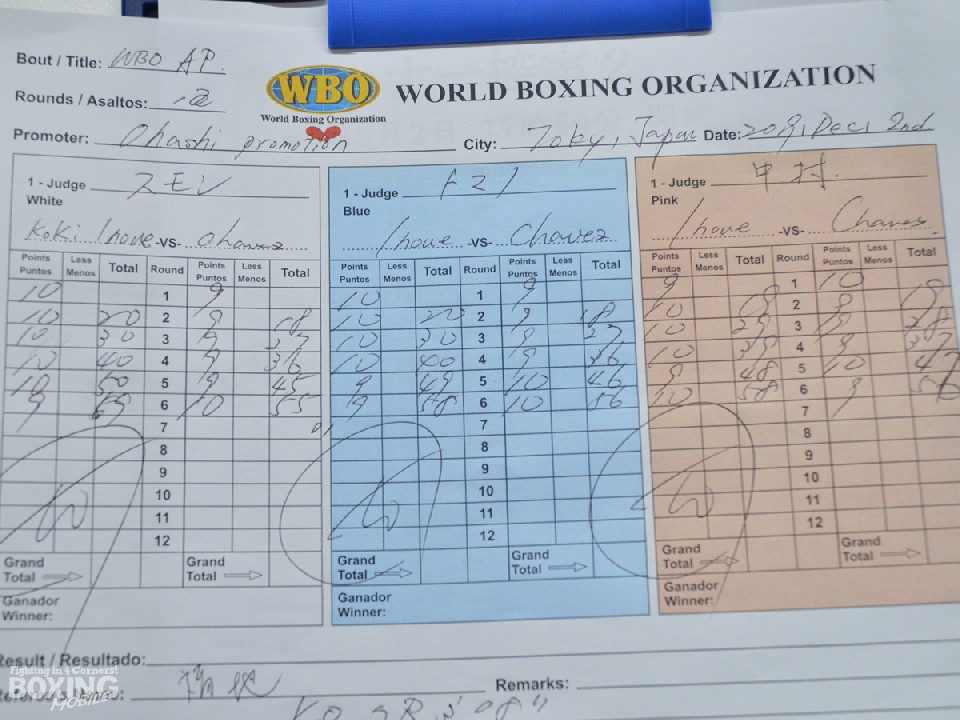 Bout / Title: WBO AP.
WBO
World Boxing Organization
WORLD BOXING ORGANIZATION
Rounds / Asaltos:
Promoter: Ohashi promotion City: Japan Date: Dec, 2nd
1 - Judge
White
Koki Inoue -VS- Chavez
Points Puntos Less Menos Total Round Points Puntos Less Menos Total
10 1 9
10 20 2 9 18
10 30 3 9 27
10 40 4 9 36
10 50 5 9 45
9 59 6 10 55
7
8
9
10
11
12
Grand Total Grand Total
Ganador
Winner:
1 - Judge
Blue
Inoue -VS- Chavez
Points Puntos Less Menos Total Round Points Puntos Less Menos Total
10 1 9
10 20 2 9 18
10 30 3 9 27
10 40 4 9 36
9 49 5 10 46
9 58 6 10 56
7
8
9
10
11
12
Grand Total Grand Total
Ganador
Winner:
1 - Judge 中村.
Pink
Inoue -VS- Chavez
Points Puntos Less Menos Total Round Points Puntos Less Menos Total
9 1 10
10 19 2 9 19
10 29 3 9 28
10 39 4 9 37
9 48 5 10 47
10 58 6 9 56
7
8
9
10
11
12
Grand Total Grand Total
Ganador
Winner:
Result / Resultado:
Remarks:
Fighting in 4 Corners!
BOXING
MOBILE